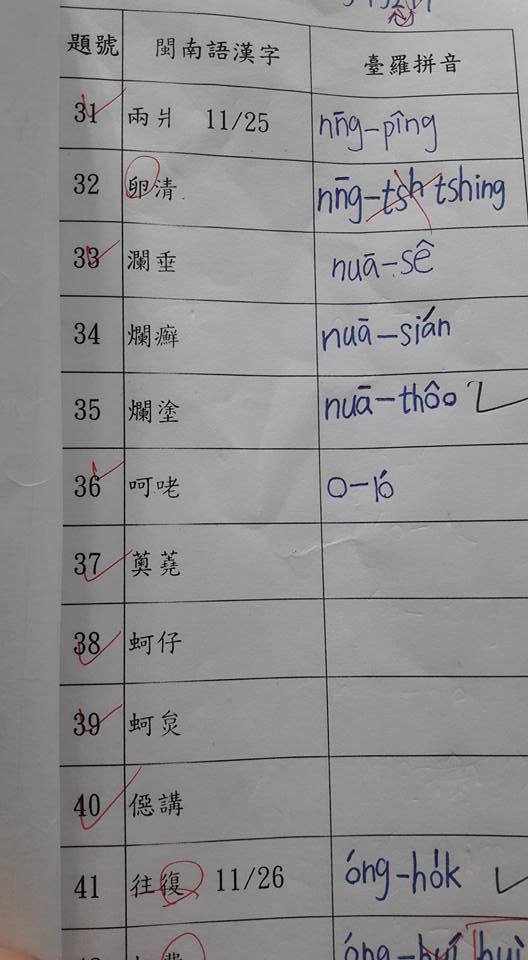 題號 閩南語漢字 臺羅拼音
31 兩爿 11/25 nn̄g-pîng
32 卵清 nn̄g-tsh tshing
33 瀾垂 nuā-sê
34 爛癬 nuā-sián
35 爛塗 nuā-thôo
36 呵咾 o-ló
37 薁蕘
38 蚵仔
39 蚵炱
40 僫講
41 往復 11/26 óng-ho̍k
óng-huí huì